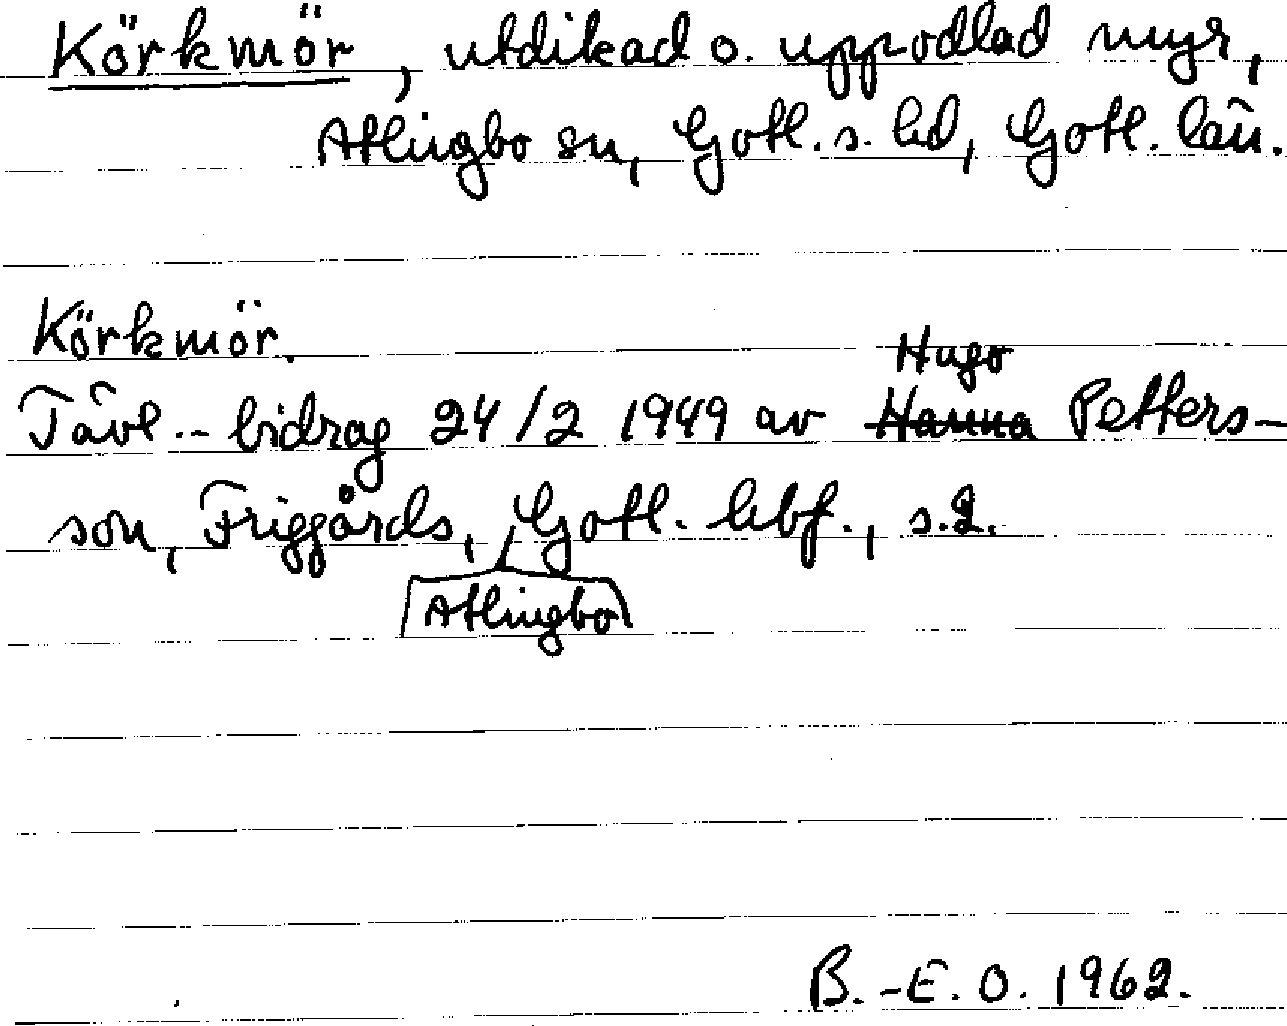 Körkmör, utdikad o. uppodlad myr,
Atlingbo sn, Gotl. s. hd, Gotl. län.
Körkmör.
Hugo
Tävl.-bidrag 24/2 1949 av Hanna Petters-
son, Friggårds, Gotl. hbf., s. 2.
Atlingbo
B.-E. O. 1962.